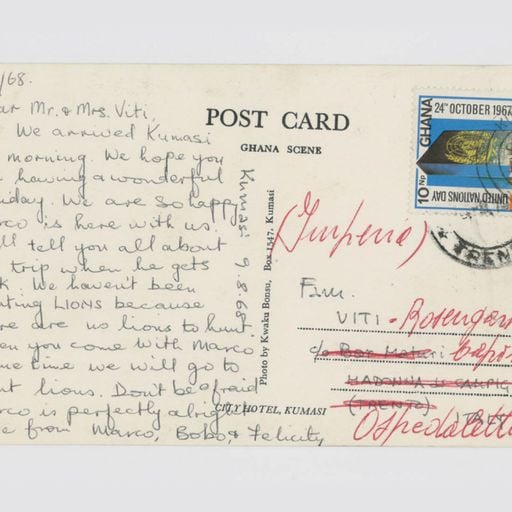 /68.
ar Mr. & Mrs. Viti,
We arrived Kumasi
morning. We hope you
having a wonderful
liday. We are so happy
rco is here with us.
ll tell you all about
trip when he gets
k. We haven't been
ting LIONS because
re are no lions to hunt.
en you come with Marco
me time we will go to
nt lions. Don't be afraid
rco is perfectly alright
e from Marco, Bobo, & Felicity,
POST CARD
GHANA SCENE
Kumasi 9.8.68
Photo by Kwaku Bonsu, Box 1547, Kumasi
CITY HOTEL, KUMASI
24TH OCTOBER 1967
GHANA
10 Np
UNITED NATIONS DAY
TREN
(Imperia)
Fam.
VITI - Rosengar
c/o Bar
MADONNA DI CAMPIG
(TRENTO)
ITALY
Ospedaletti